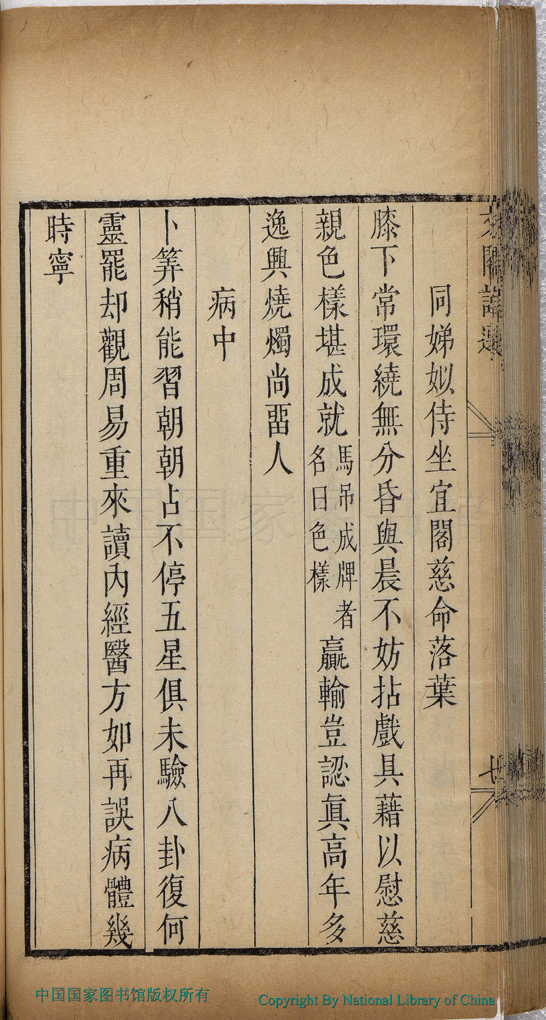 同娣姒侍坐宜閣慈命落葉
膝下常環繞無分昏與晨不妨拈戲具藉以慰慈
親色樣堪成就馬吊成牌者名曰色樣贏輸豈認眞高年多
逸興燒燭尚畱人
病中
卜筭稍能習朝朝占不停五星俱未驗八卦復何
靈罷却觀周易重來讀內經醫方如再誤病體幾
時寧
中国国家图书馆版权所有
Copyright By National Library of China